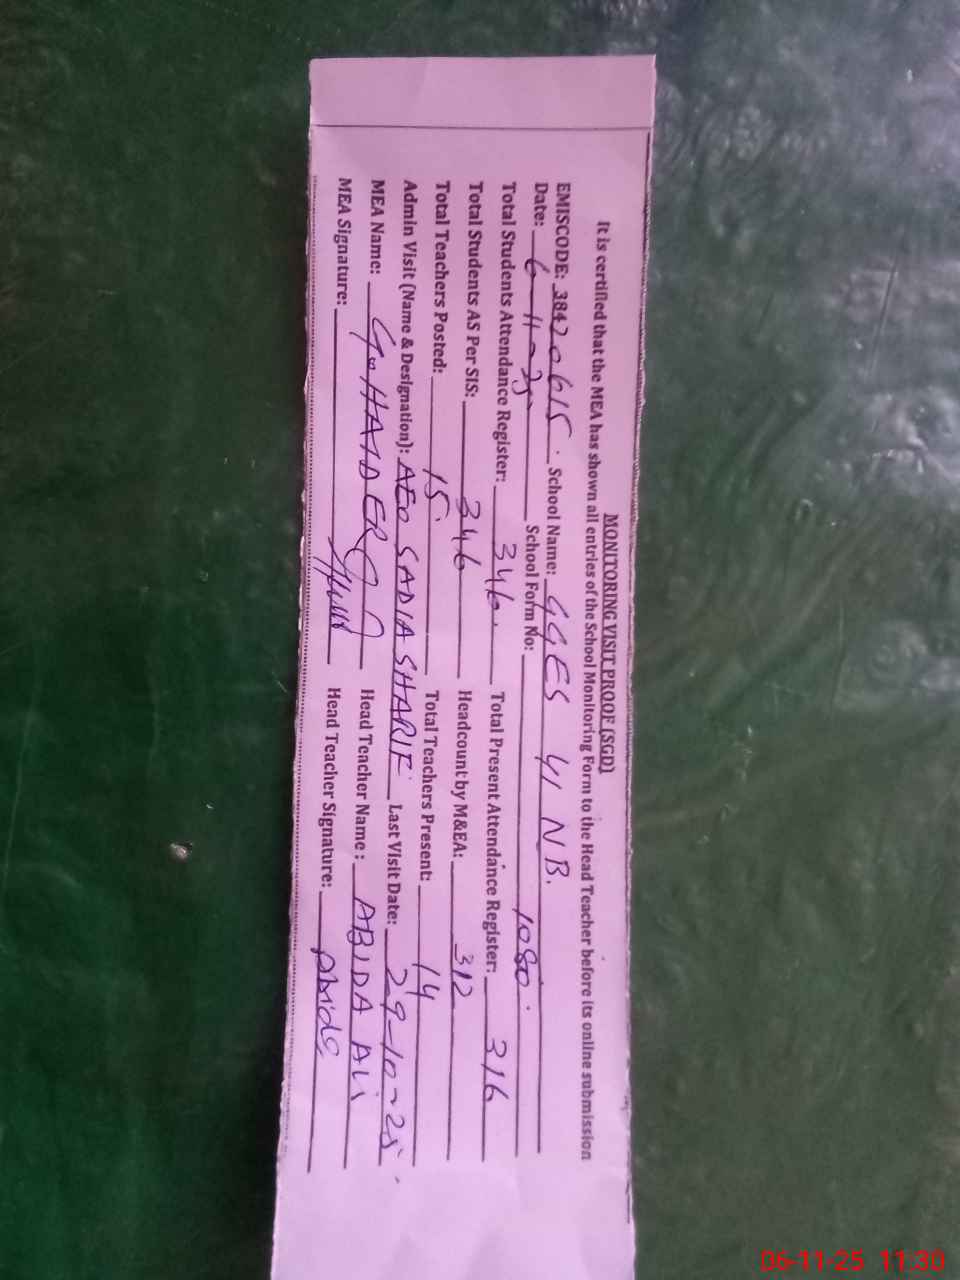 MONITORING VISIT PROOF (SGD)
It is certified that the MEA has shown all entries of the School Monitoring Form to the Head Teacher before its online submission
EMISCODE: 38420615. School Name: GGES 41 NB.
Date: 6-11-25 School Form No: 1080.
Total Students Attendance Register: 346. Total Present Attendance Register: 316
Total Students AS Per SIS: 346 Headcount by M&EA: 312
Total Teachers Posted: 15 Total Teachers Present: 14
Admin Visit (Name & Designation): AEO SADIA SHARIF Last Visit Date: 29-10-25
MEA Name: G. HAIDER Head Teacher Name: ABIDA ALi
MEA Signature: Head Teacher Signature: Abida
06-11-25 11:30